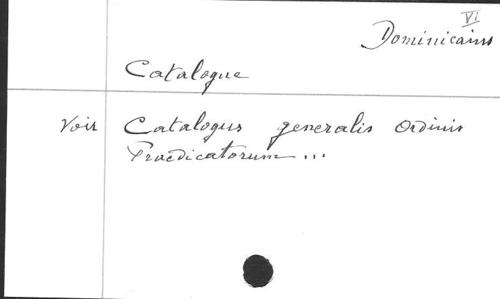 VI
Dominicains
Catalogue
Voir Catalogus generalis Ordinis
Praedicatorum ...